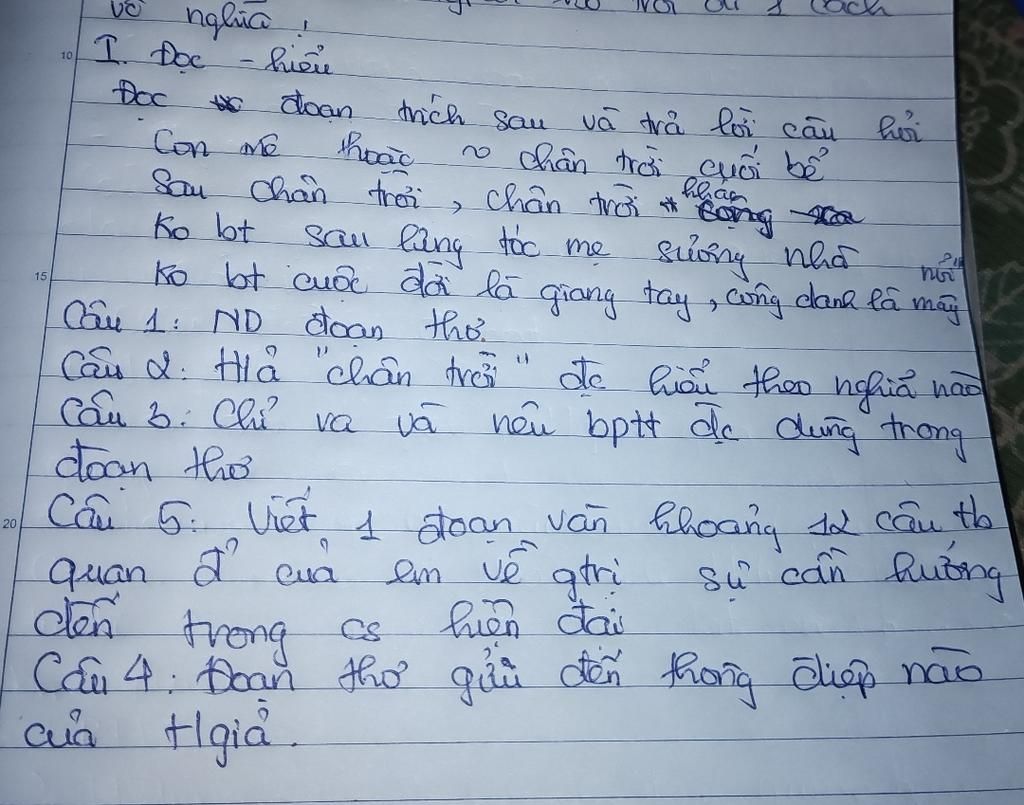 vô nghĩa,
I. Đọc - hiểu
Đọc đoạn trích sau và trả lời câu hỏi
Con mê hoặc ~ chân trời cuối bể
Sau chân trời, chân trời khác
Ko bt sau lưng tóc mẹ sương nhòa
Ko bt cuộc đời là giang tay, công danh là mây nổi"
Câu 1: ND đoạn thơ.
Câu 2: H/ả "chân trời" đc hiểu theo nghĩa nào
Câu 3: Chỉ va và nêu bptt đc dùng trong
đoạn thơ
Câu 5: Viết 1 đoạn văn khoảng 12 câu tb
quan đ' của em về gtrị sự cần hướng
đến trong cs hiện đại
Câu 4: Đoạn thơ gửi đến thông điệp nào
của t/giả.